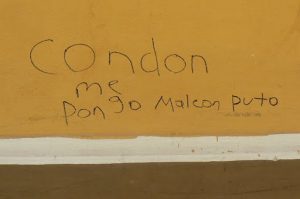 Condon
me
pongo Malcon puto